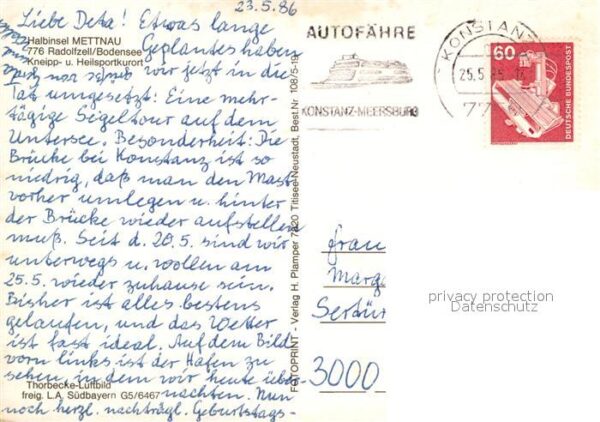 23.5.86
Liebe Deta! Etwas lange
Halbinsel METTNAU
7760 Radolfzell/Bodensee
Kneipp- u. Heilsportkurort
Geplantes haben
wir jetzt in die
Tat umgesetzt: Eine mehr-
tägige Segeltour auf dem
Untersee. Besonderheit: Die
Brücke bei Konstanz ist so
niedrig, daß man den Mast
vorher umlegen u. hinter
der Brücke wieder aufstellen
muß. Seit d. 20.5. sind wir
unterwegs u. wollen am
25.5. wieder zuhause sein.
Bisher ist alles bestens
gelaufen, und das Wetter
ist fast ideal. Auf dem Bild
vorn links ist der Hafen zu
sehen, in dem wir heute über-
Thorbecke-Luftbild
freig. L.A. Südbayern G5/6467
nachten. Nun
noch herzl. nachträgl. Geburtstags-
FOTOPRINT - Verlag H. Plamper 7820 Titisee-Neustadt, Best.Nr. 108/5-19
AUTOFÄHRE
KONSTANZ-MEERSBURG
KONSTANZ
25.5.
60
DEUTSCHE BUNDESPOST
Frau
Marg
Sertür
3000
privacy protection
Datenschutz